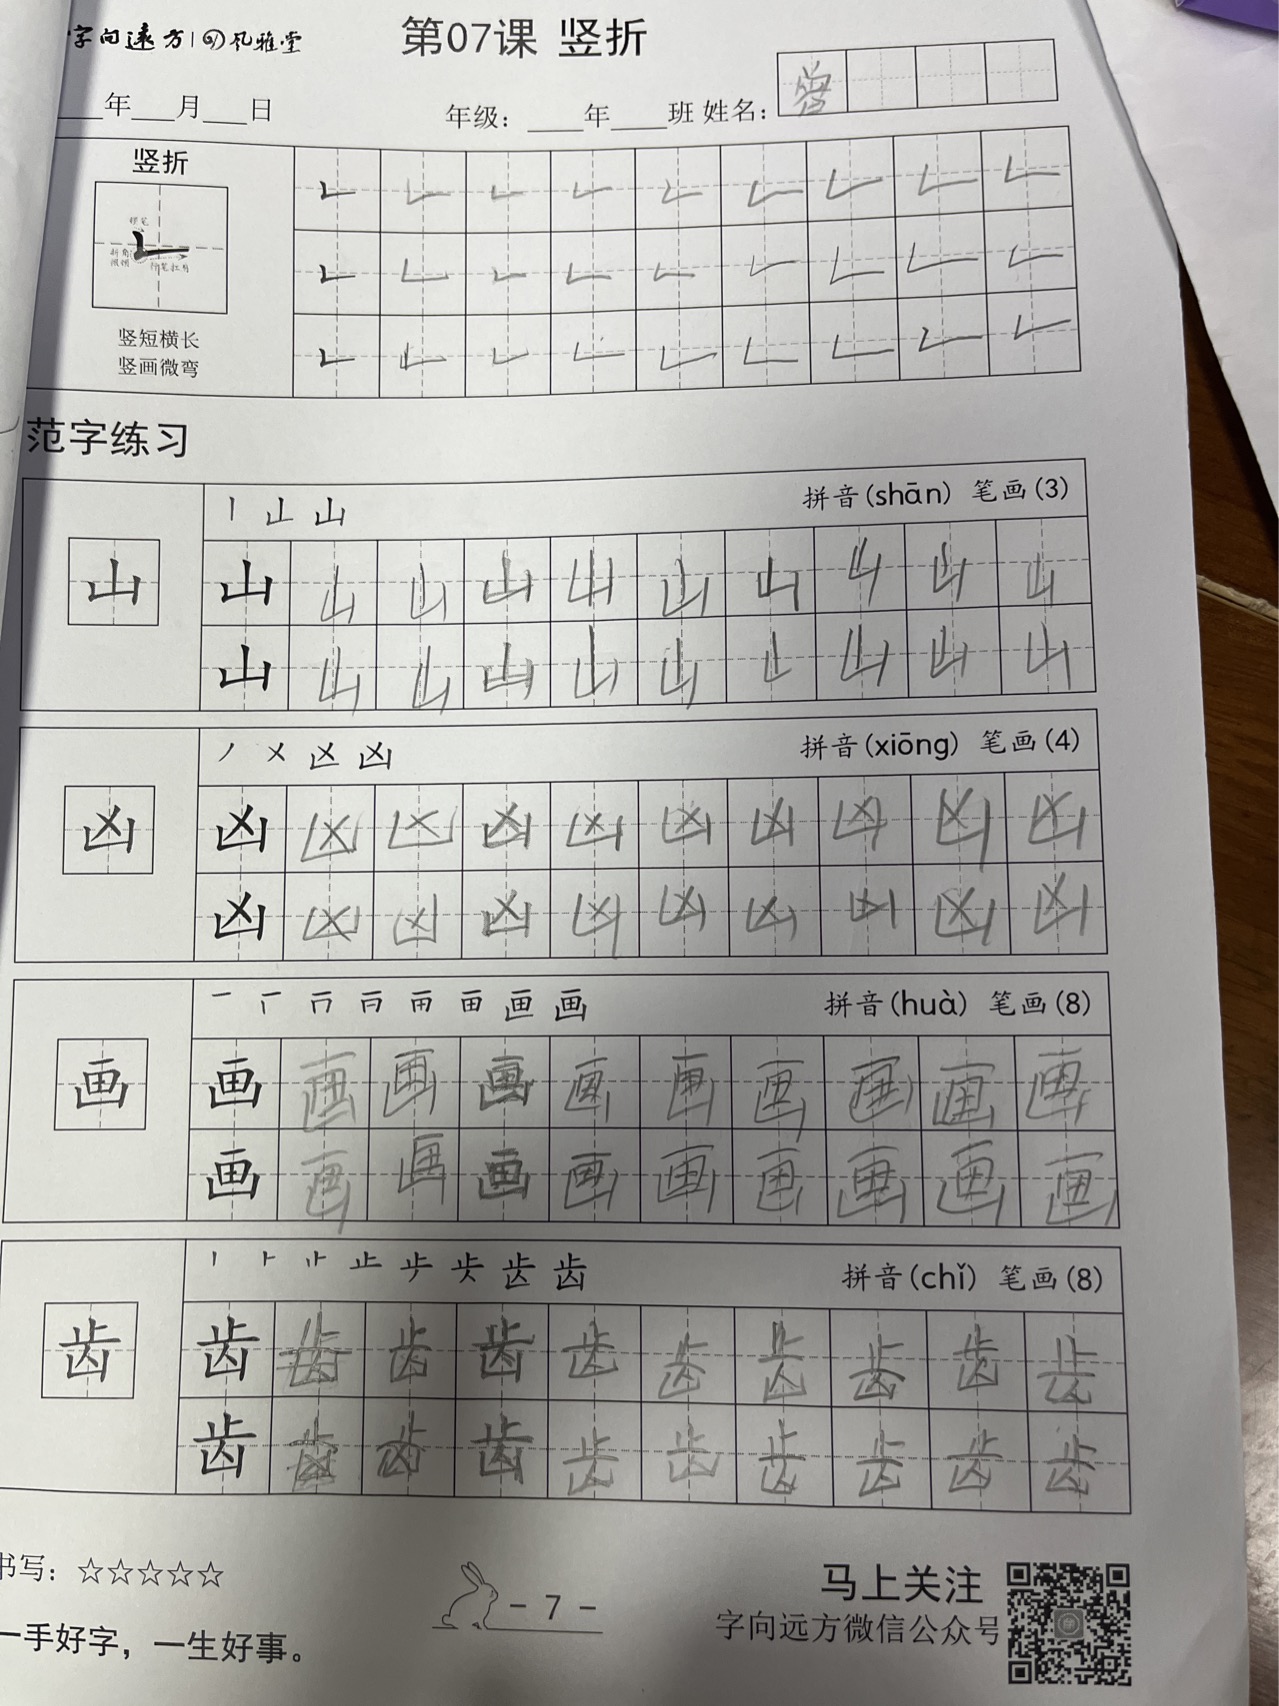 字向远方 风雅堂
第07课 竖折
年 月 日 年级： 年 班 姓名：
竖折
竖短横长
竖画微弯
范字练习
丨 山 拼音(shān) 笔画(3)
山 山 山 山 山 山 山 山 山 山 山
山 山 山 山 山 山 山 山 山 山
丿 㐅 凶 拼音(xiōng) 笔画(4)
凶 凶 凶 凶 凶 凶 凶 凶 凶 凶 凶
凶 凶 凶 凶 凶 凶 凶 凶 凶 凶
一 画 拼音(huà) 笔画(8)
画 画 画 画 画 画 画 画 画 画 画
画 画 画 画 画 画 画 画 画 画
丨 止 齿 拼音(chǐ) 笔画(8)
齿 齿 齿 齿 齿 齿 齿 齿 齿 齿 齿
齿 齿 齿 齿 齿 齿 齿 齿 齿 齿
书写：☆☆☆☆☆
一手好字，一生好事。
- 7 -
马上关注
字向远方微信公众号